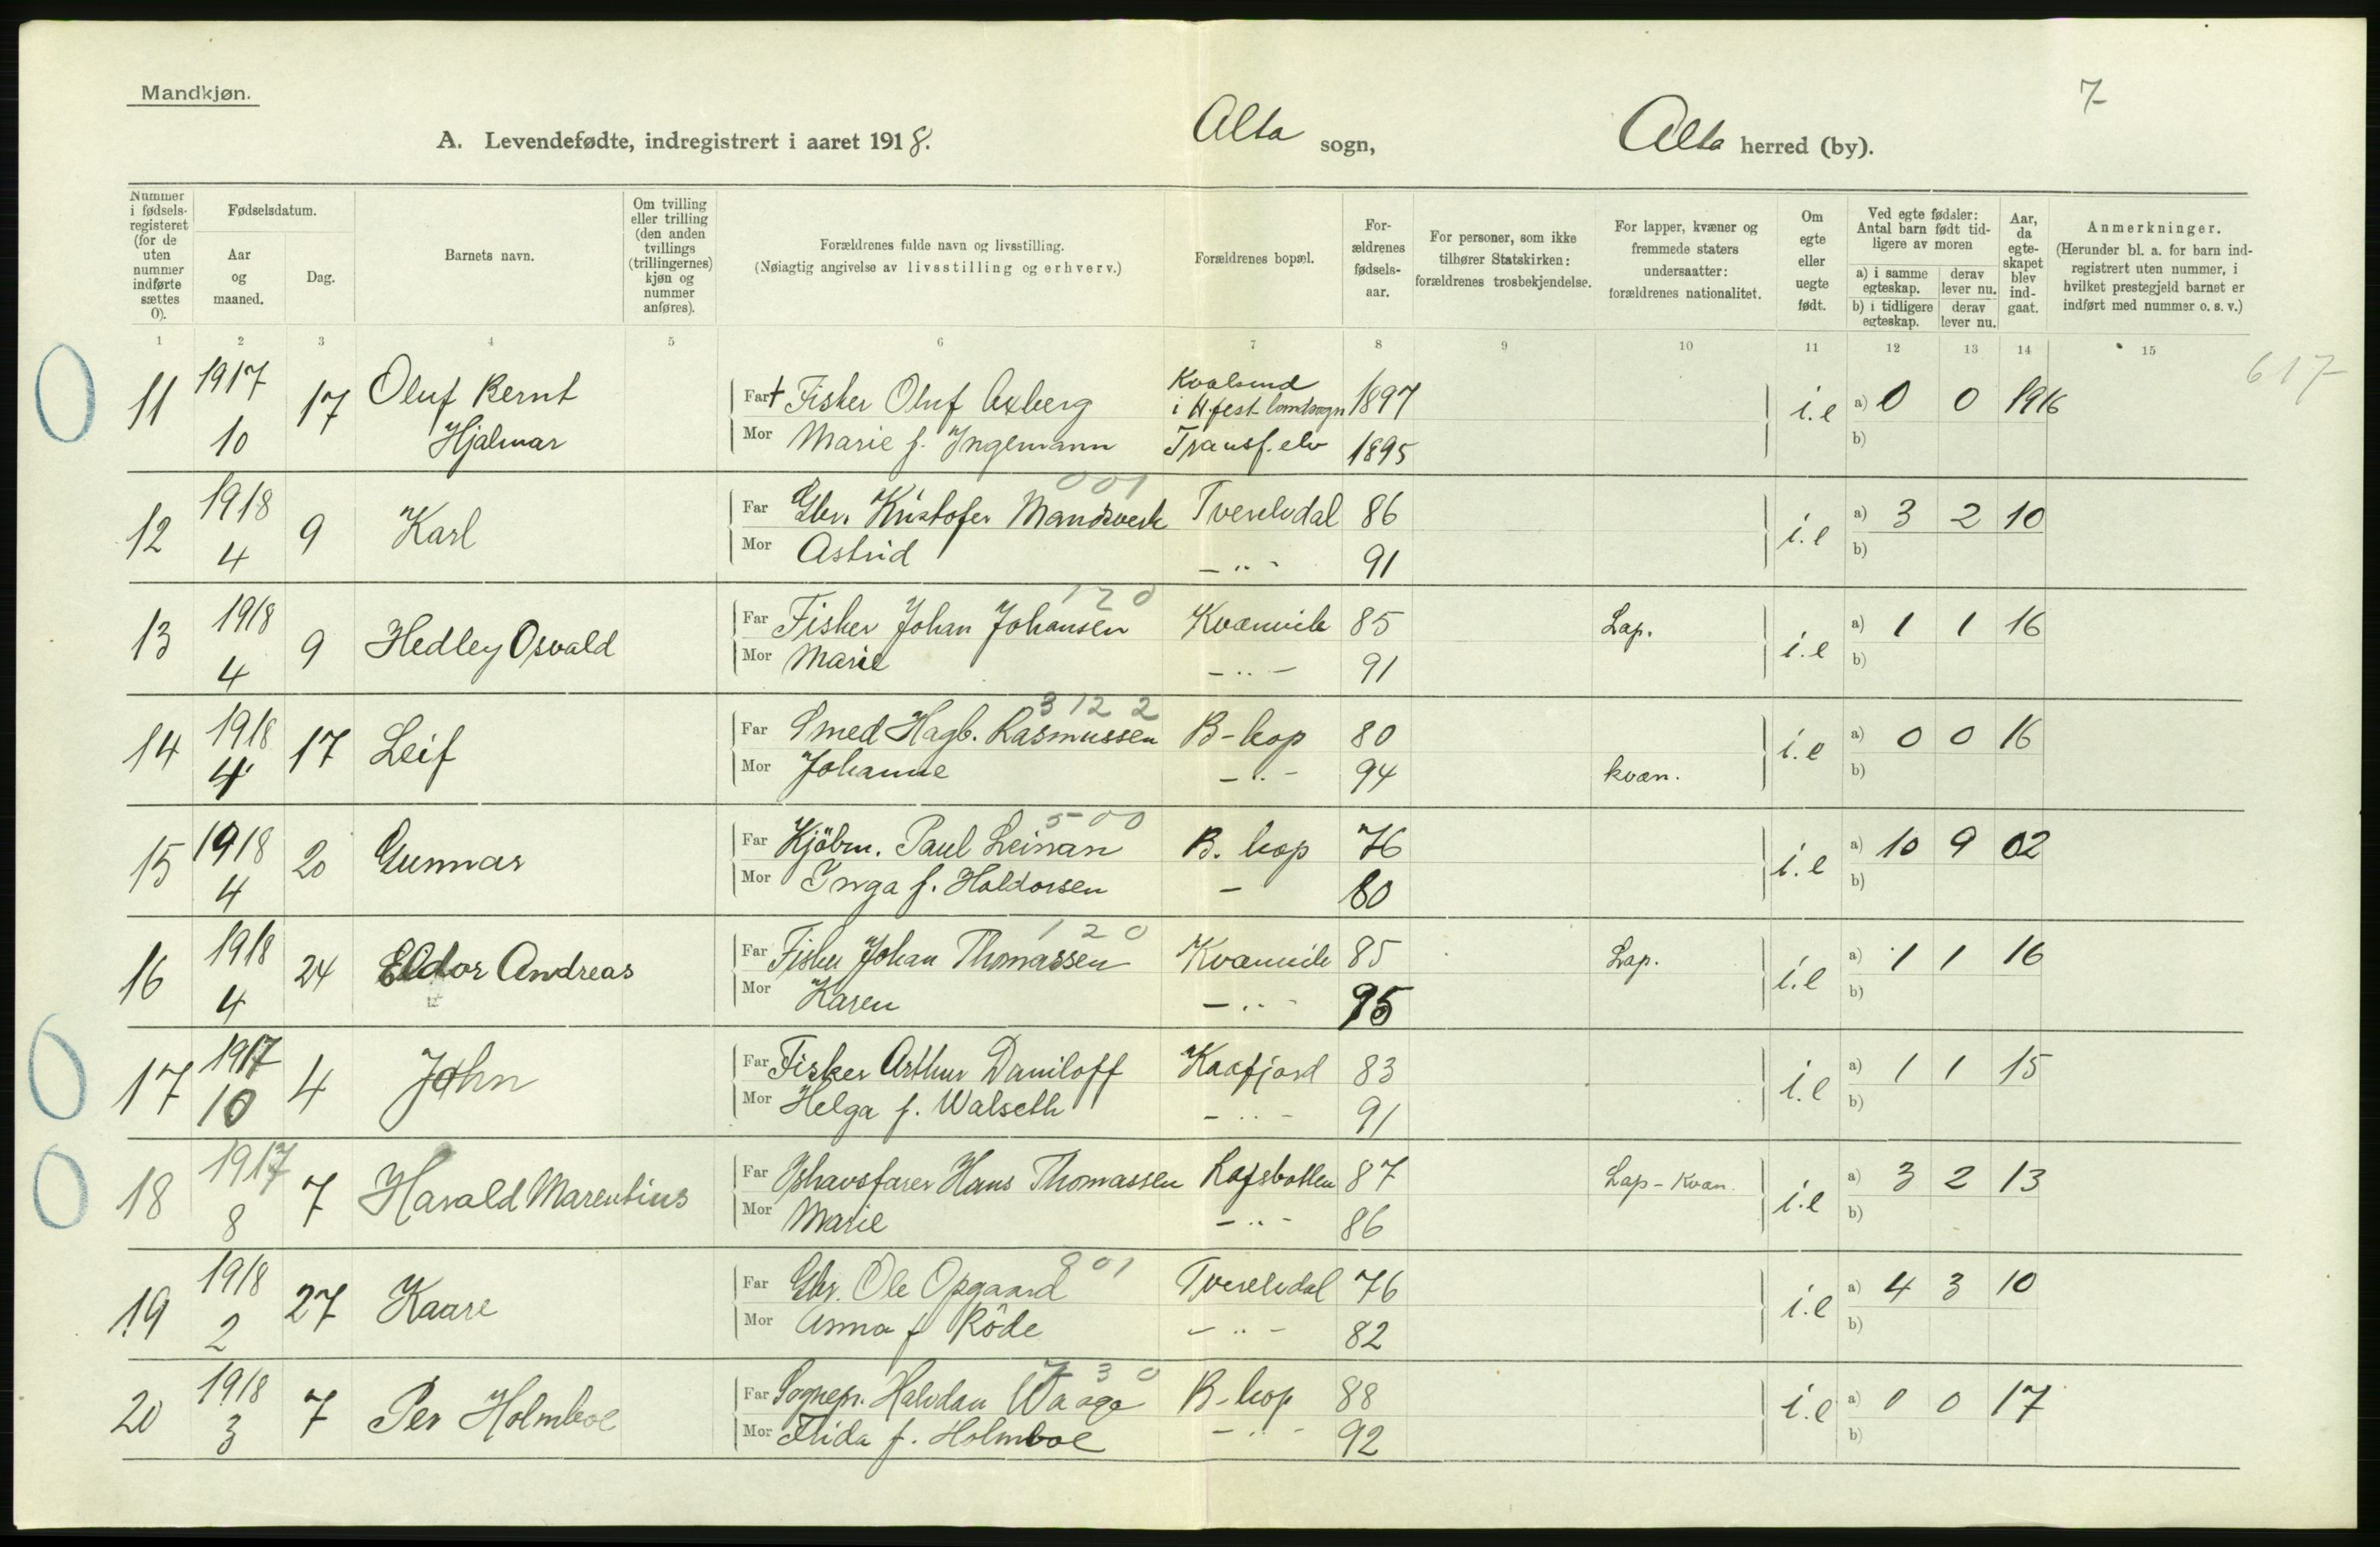 Mandkjøn.
7
A. Levendefødte, indregistrert i aaret 1918. Alta sogn, Alta herred (by).
Nummer i fødselsregisteret (for de uten nummer indførte sættes 0).
Fødselsdatum.
Aar og maaned.
Dag.
Barnets navn.
Om tvilling eller trilling (den anden tvillings (trillingernes) kjøn og nummer anføres).
Forældrenes fulde navn og livsstilling.
(Nøiagtig angivelse av livsstilling og erhverv.)
Forældrenes bopæl.
Forældrenes fødselsaar.
For personer, som ikke tilhører Statskirken: forældrenes trosbekjendelse.
For lapper, kvæner og fremmede staters undersaatter: forældrenes nationalitet.
Om egte eller uegte født.
Ved egte fødsler: Antal barn født tidligere av moren
a) i samme egteskap. derav lever nu.
b) i tidligere egteskap. derav lever nu.
Aar, da egteskapet blev indgaat.
Anmerkninger.
(Herunder bl. a. for barn indregistrert uten nummer, i hvilket prestegjeld barnet er indført med nummer o. s. v.)
1 2 3 4 5 6 7 8 9 10 11 12 13 14 15
617
0 11 1917 10 17 Oluf Bernt Hjalmar
Far † Fisker Oluf Axberg Kvalsund i H.fest landsogn 1897 i.e a) 0 0 1916
Mor Marie f. Ingemann Transf.elv 1895 b)
001
12 1918 4 9 Karl
Far Gbr. Kristofer Mandsverk Tverelvdal 86 i.e a) 3 2 10
Mor Astrid -"- 91 b)
120
13 1918 4 9 Hedley Osvald
Far Fisker Johan Johansen Kvænvik 85 Lap. i.e a) 1 1 16
Mor Marie -"- 91 b)
3 12 2
14 1918 4 17 Leif
Far Smed Hagb. Rasmussen B-kop 80 i.e a) 0 0 16
Mor Johanne -"- 94 kvæn. b)
500
15 1918 4 20 Gunnar
Far Kjöbm. Paul Leinan B. kop 76 i.e a) 10 9 02
Mor Inga f. Haldorsen - 80 b)
120
16 1918 4 24 Eldor Andreas
Far Fisker Johan Thomassen Kvænvik 85 Lap. i.e a) 1 1 16
Mor Karen -"- 95 b)
0 17 1917 10 4 John
Far Fisker Arthur Daniloff Kaafjord 83 i.e a) 1 1 15
Mor Helga f. Walseth -"- 91 b)
0 18 1917 8 7 Harald Marentius
Far Ishavsfarer Hans Thomassen Rafsbotten 87 Lap-Kvæn. i.e a) 3 2 13
Mor Marie -"- 86 b)
001
19 1918 2 27 Kaare
Far Gbr. Ole Opgaard Tverelvdal 76 i.e a) 4 3 10
Mor Anna f Röde -"- 82 b)
730
20 1918 3 7 Per Holmboe
Far Sognepr. Halvdan Waage B-kop 88 i.e a) 0 0 17
Mor Frida f. Holmboe -"- 92 b)